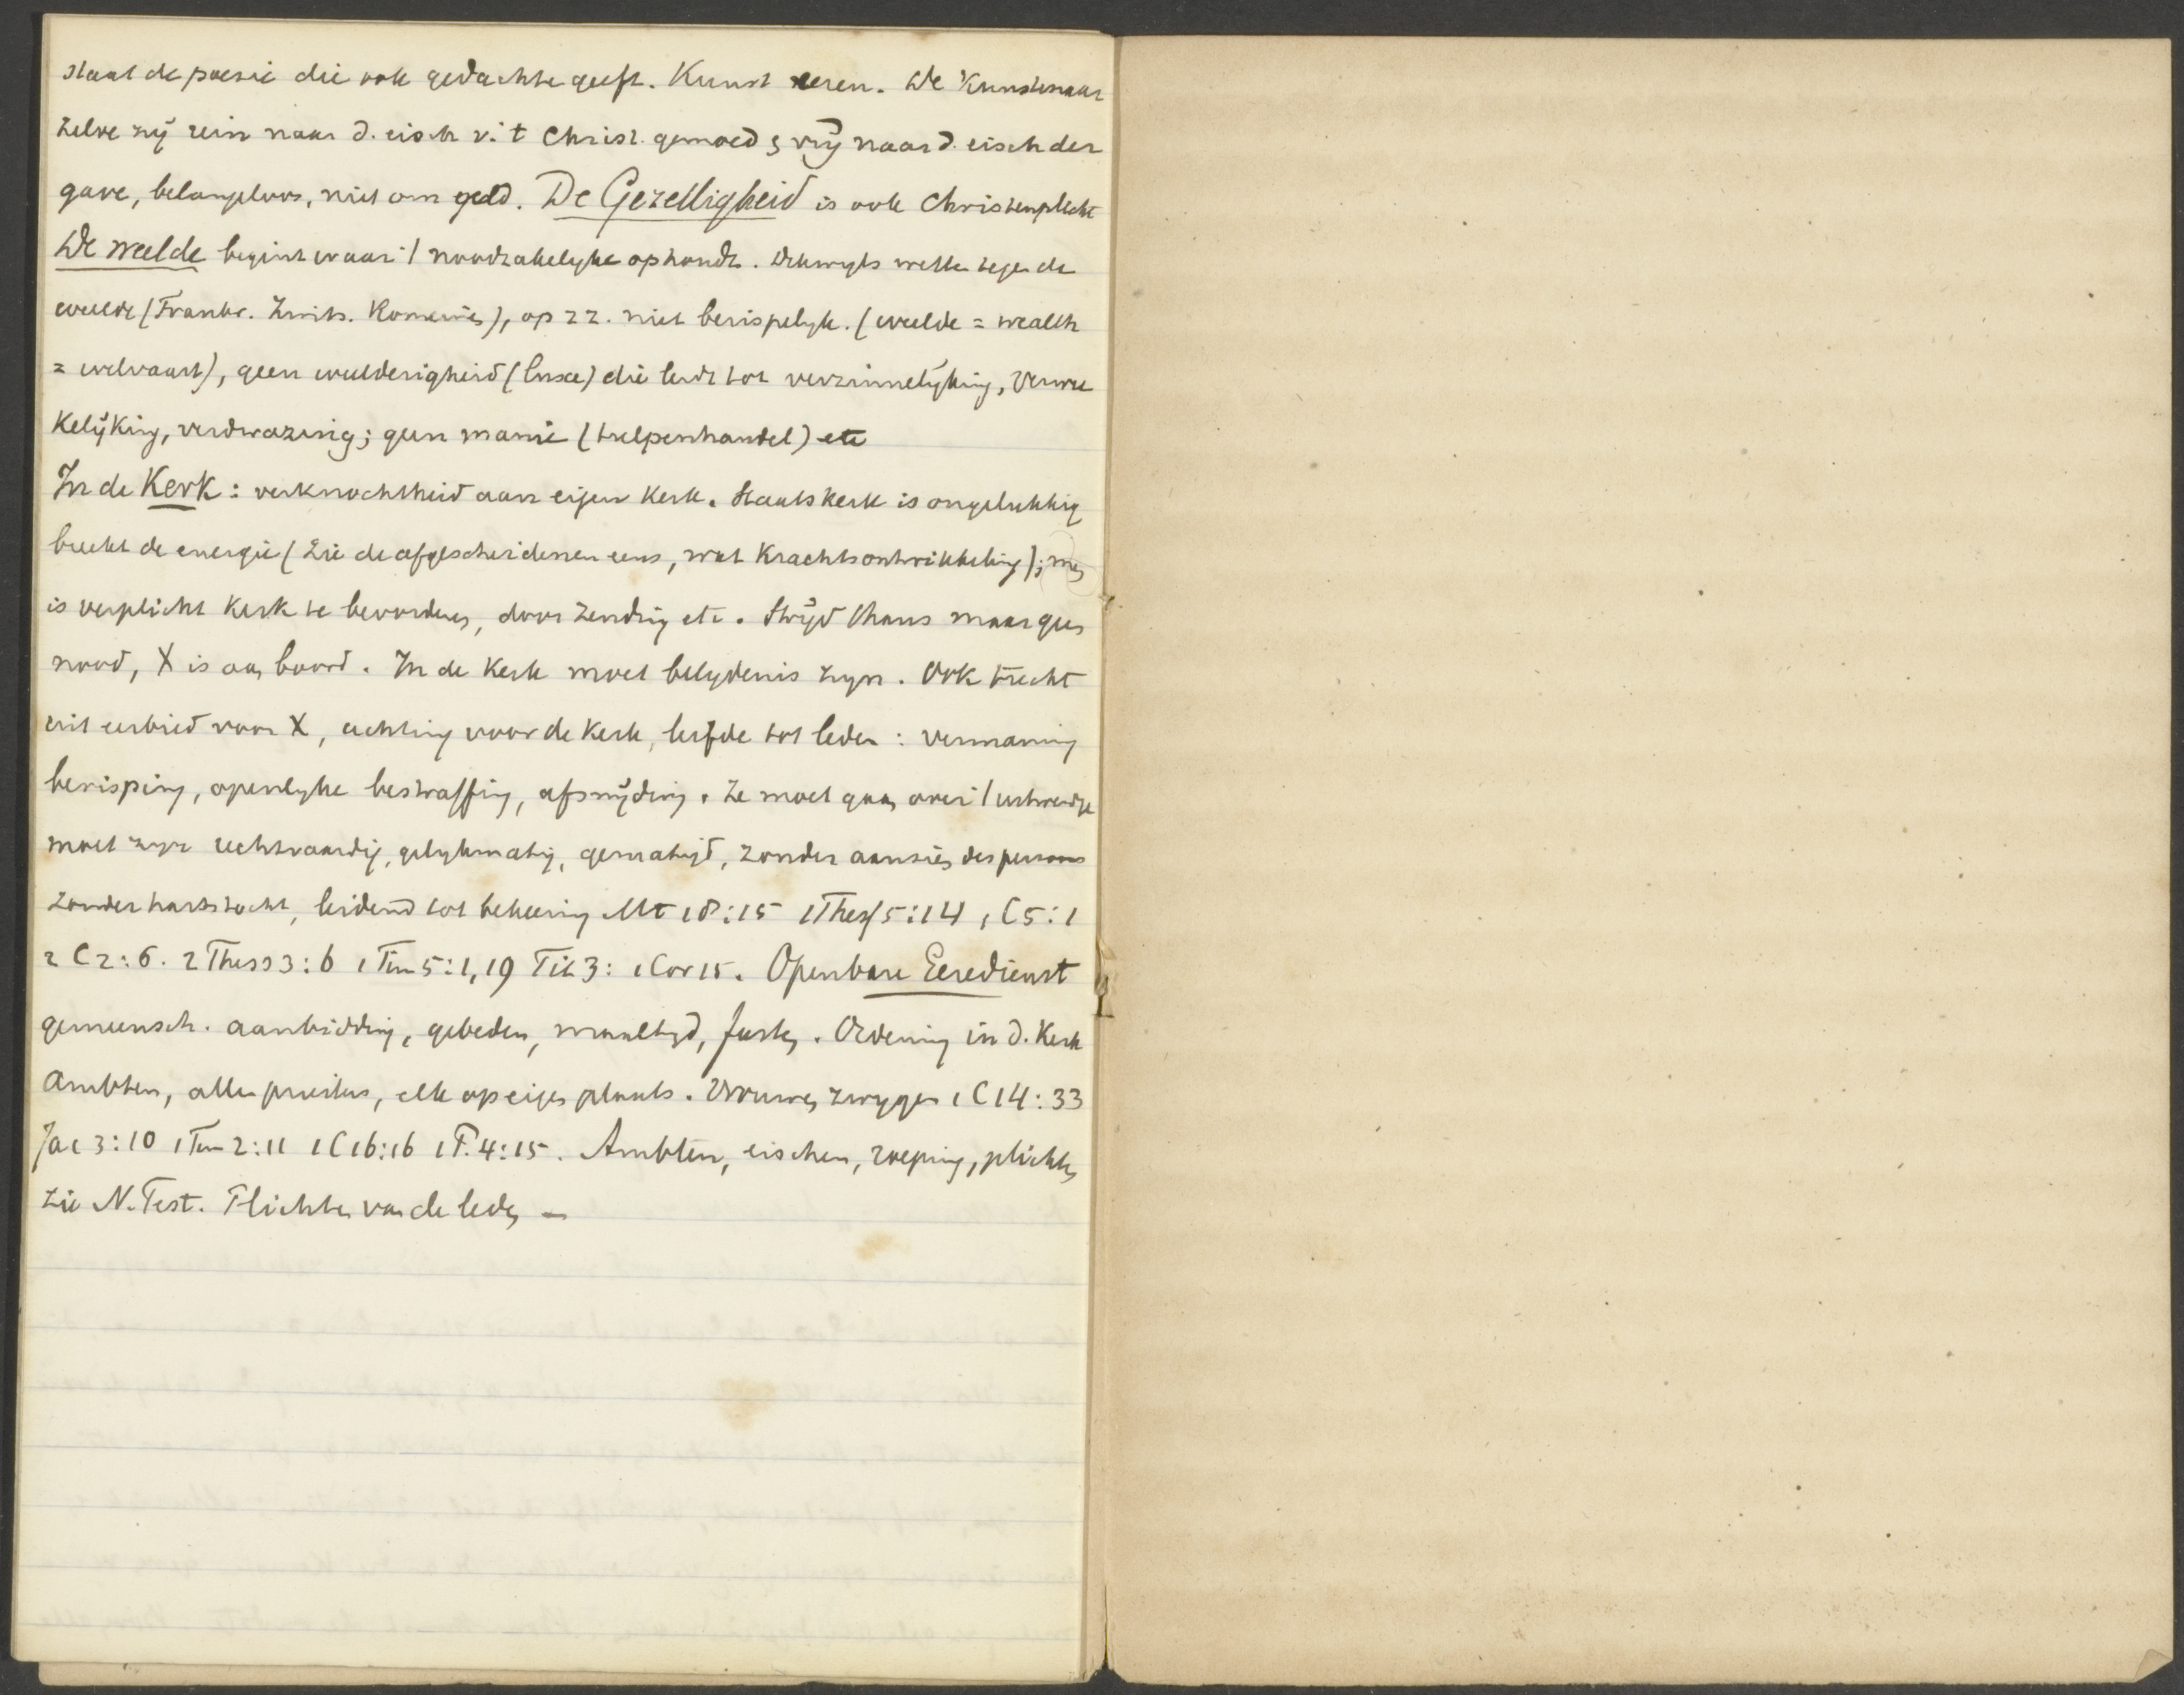 staat de poesie die ook gedachte geeft. Kunst eeren. De Kunstenaar
zelve zij rein naar d. eisch v. 't Christ. gemoed & vrij naar d. eisch der
gave, belangeloos, niet om geld. De Gezelligheid is ook Christenplicht
De weelde begint waar 't noodzakelyke ophoudt. Dikwyls wetten tegen de
weelde (Frankr. Zwits. Romeinen), op zz. niet berispelyk. (weelde = wealth
= welvaart), geen weelderigheid (luxe) die leidt tot verzinnelijking, verwee
kelijking, verdwazing; geen manie (tulpenhandel) etc
In de Kerk: verknochtheid aan eigen Kerk. Staatskerk is ongelukkig
breekt de energie (Zie de afgescheidenen eens, wat Krachtsontwikkeling); men
is verplicht Kerk te bevorderen, door zending etc. Strijd thans maar geen
nood, X is aan boord. In de Kerk moet belydenis zyn. Ook tucht
uit eerbied voor X, achting voor de Kerk, liefde tot leden: vermaning
berisping, openlyke bestraffing, afsnijding. Ze moet gaan over 't uitwendige
moet zyn rechtvaardig, gelykmatig, gematigd, zonder aanzien des persoons
zonder hartstocht, leidend tot bekeering Mt 18:15 1Thess 5:14 1C5:1
2 C2:6. 2Thess3:6 1Tim5:1,19 Tit3: 1Cor15. Openbare Eeredienst
gemeensch. aanbidding, gebeden, maaltyd, feesten. Ordening in d. Kerk
Ambten, allen priesters, elk op eigen plaats. Vrouwen zwygen 1C14:33
Jac 3:10 1Tim2:11 1C16:16 1P.4:15. Ambten, eischen, roeping, plichten
zie N.Test. Plichten van de leden —